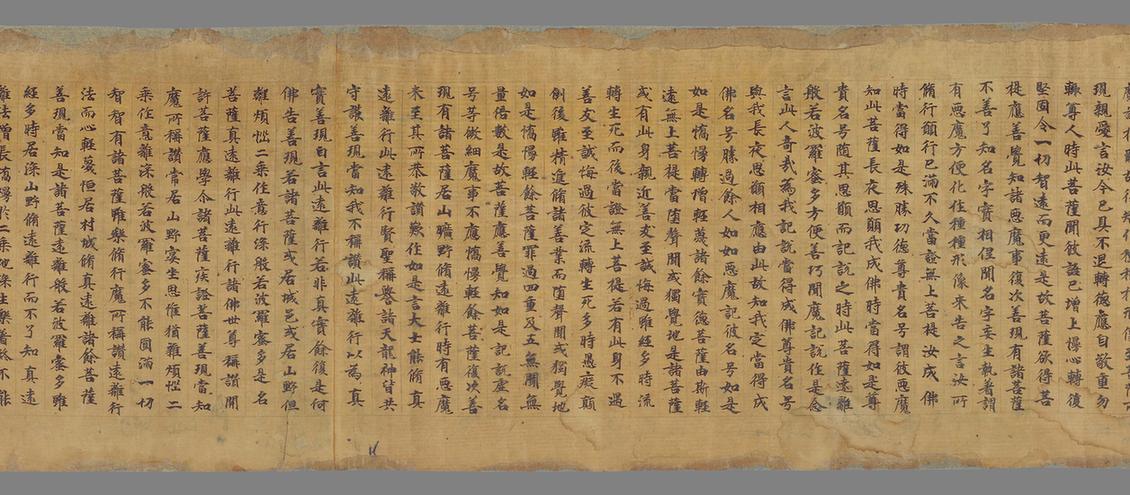 現親愛言汝今已具不退轉德應自敬重勿
輕尊人時此菩薩聞彼語已增上慢心轉復
堅固令一切智遠而更遠是故菩薩欲得菩
提應善覺知諸惡魔事復次善現有諸菩薩
不善了知名字實相但聞名字妄生執著謂
有惡魔方便化作種種形像来告之言汝所
脩行願行已滿不久當證無上菩提汝成佛
時當得如是殊勝功德尊貴名号謂彼惡魔
知此菩薩長夜思願我成佛時當得如是尊
貴名号随其思願而記說之時此菩薩遠離
般若波羅蜜多方便善巧聞魔記說作是念
言此人奇哉為我記說當得成佛尊貴名号
與我長夜思願相應由此故知我定當得成
佛名号勝過餘人如如惡魔記彼名号如是
如是憍慢轉增輕蔑諸餘實德菩薩由斯輕
遠無上菩提當堕聲聞或獨覺地是諸菩薩
或有此身親近善友至誠悔過雖經多時流
轉生死而後當證無上菩提若有此身不遇
善友至誠悔過彼定流轉生死多時愚癡顛
倒後雖精進脩諸善業而堕聲聞或獨覺地
如是憍慢輕餘菩薩罪過四重及五無間無
量倍數是故菩薩應善覺知如是記說虛名
号等微細魔事不應憍慢輕餘菩薩復次善
現有諸菩薩居山曠野脩遠離行時有惡魔
来至其所恭敬讃歎作如是言大士能脩真
遠離行此遠離行賢聖稱譽諸天龍神皆共
守護善現當知我不稱讃此遠離行以為真
實善現白言此遠離行若非真實餘復是何
佛告善現若諸菩薩或居城邑或居山野但
離煩惱二乘作意行深般若波羅蜜多是名
菩薩真遠離行此遠離行諸佛世尊稱讃開
許菩薩應學令諸菩薩疾證菩薩善現當知
魔所稱讃常居山野宴坐思惟猶雜煩惱二
乘作意離深般若波羅蜜多不能圓滿一切
智智有諸菩薩雖樂脩行魔所稱讃遠離行
法而心輕蔑恒居村城脩真遠離諸餘菩薩
善現當知是諸菩薩遠離般若波羅蜜多雖
經多時居深山野脩遠離行而不了知真遠
離法增長憍慢於二乘地深生樂著終不能